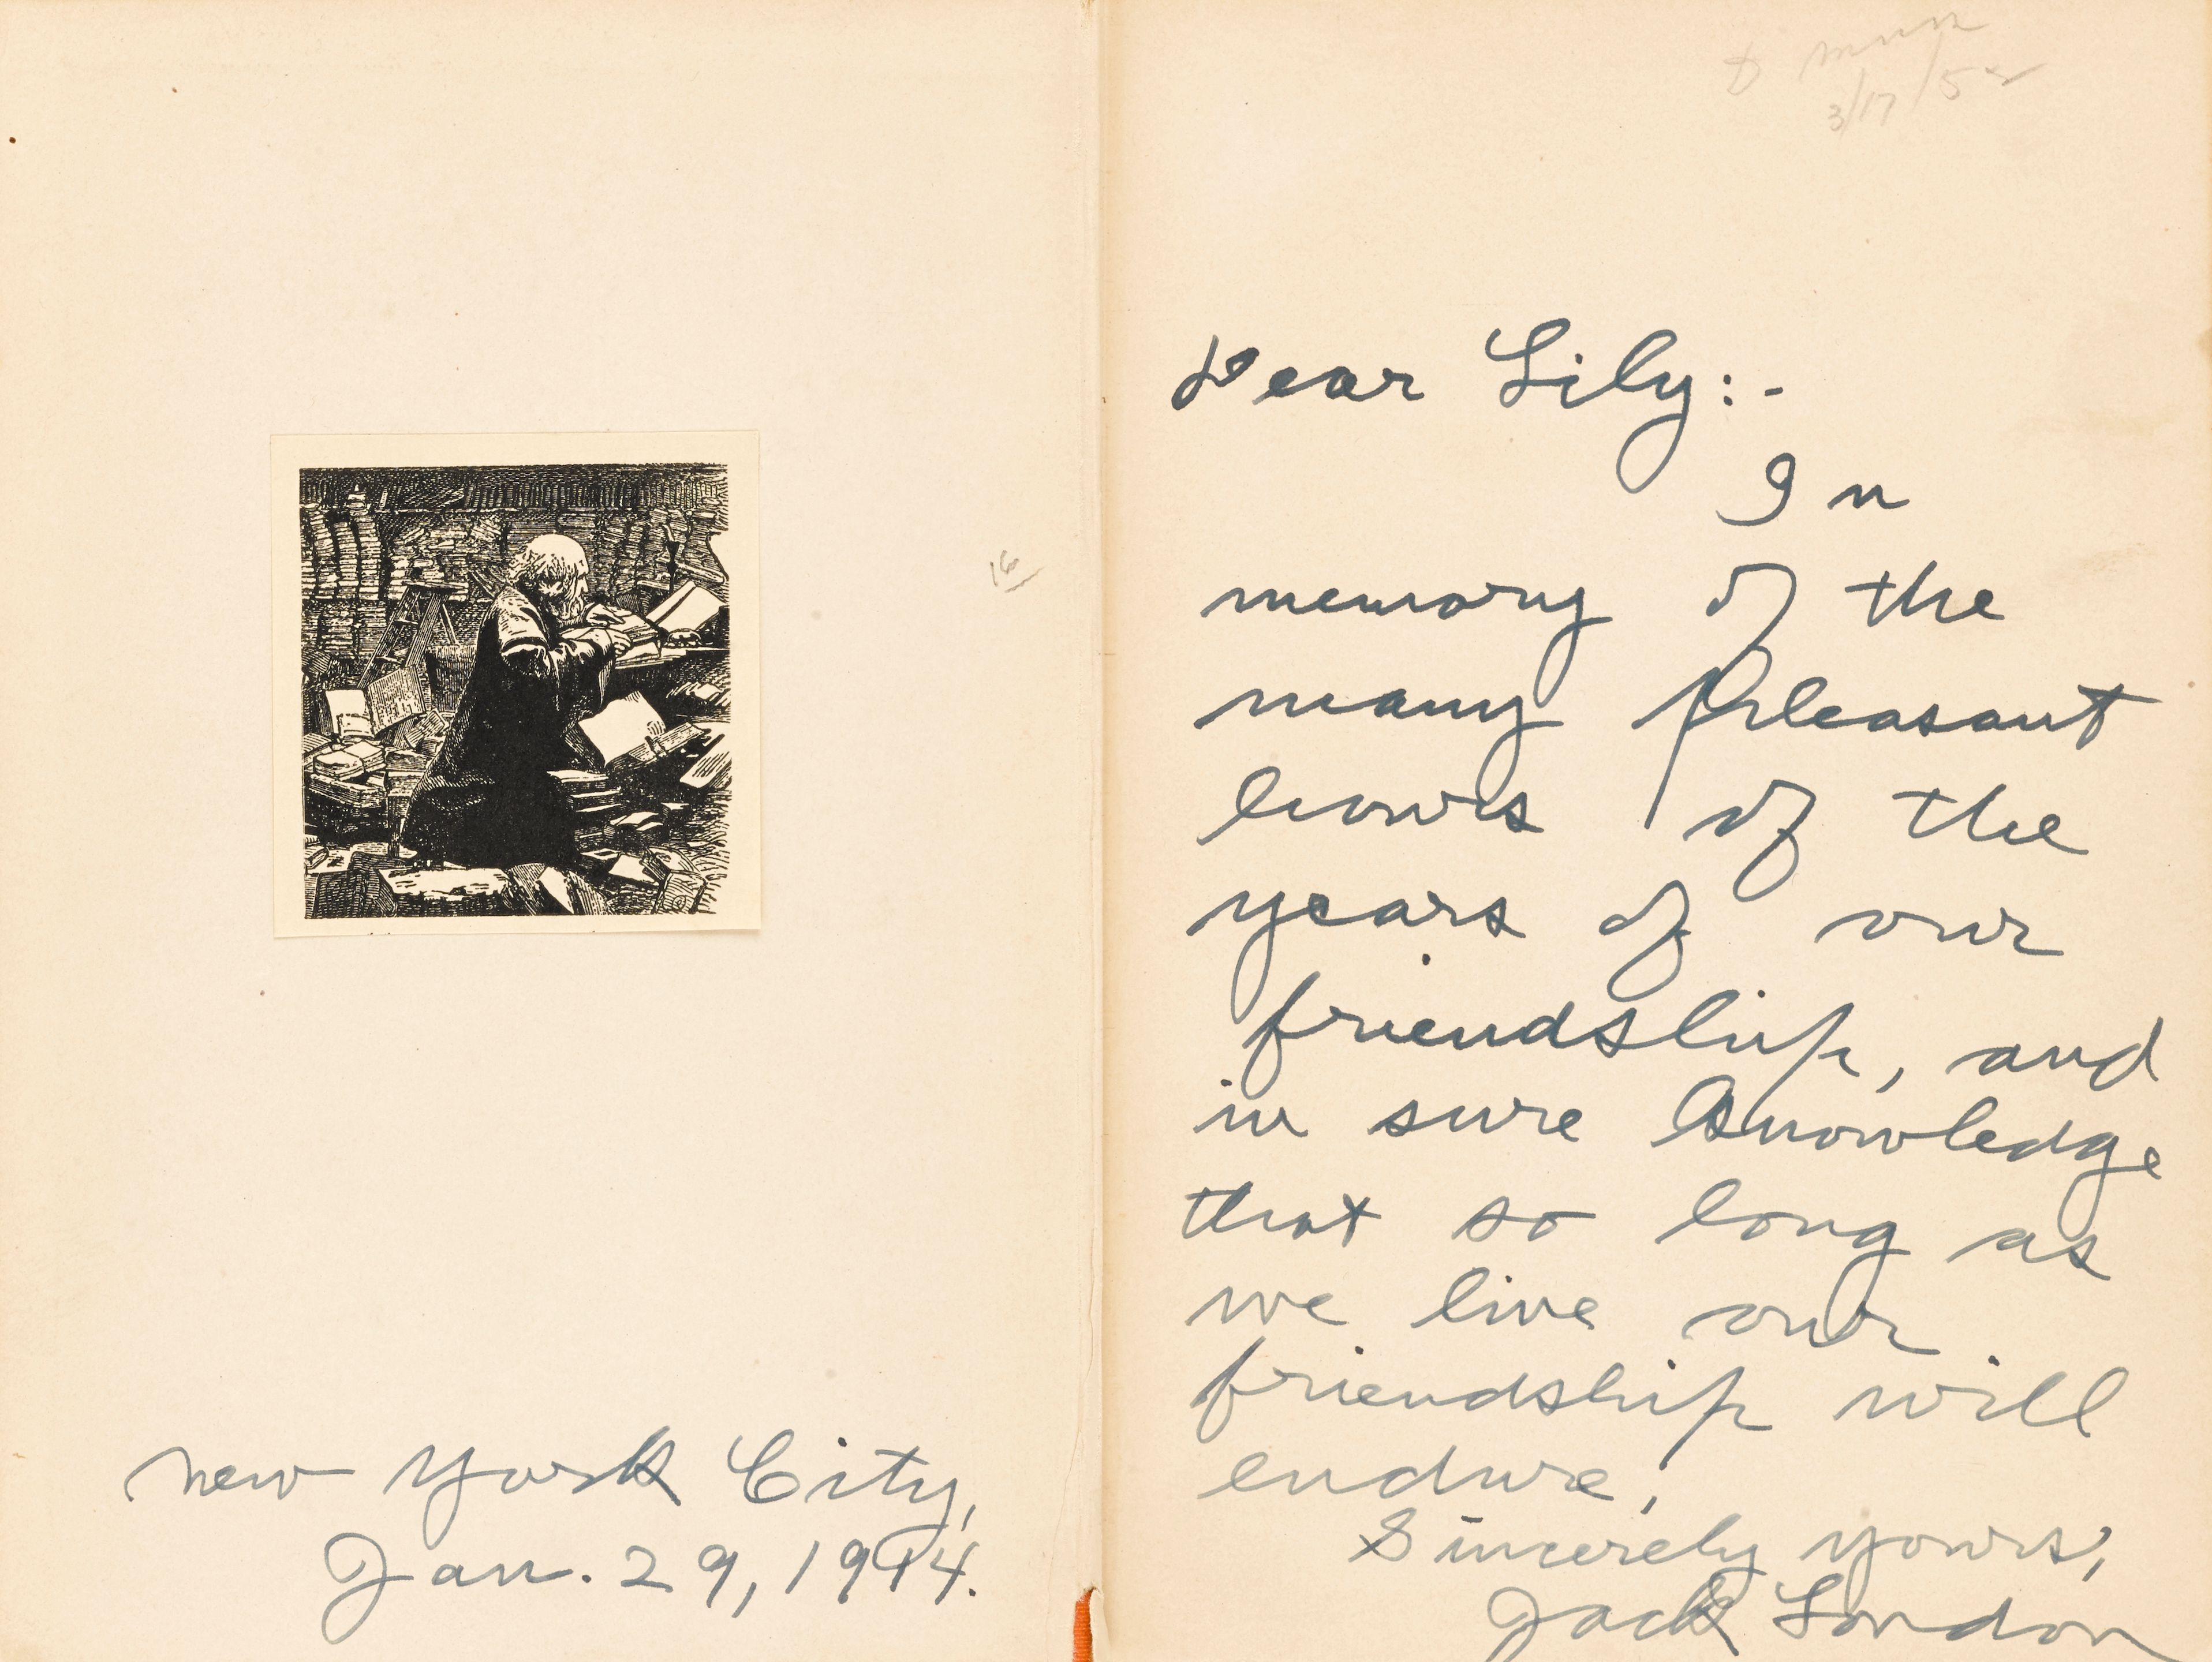 New York City,
Jan. 29, 1914.
3/17/52
16
Dear Lily:-
In
memory of the
many pleasant
hours of the
years of our
friendship, and
in sure knowledge
that so long as
we live our
friendship will
endure,
Sincerely yours,
Jack London